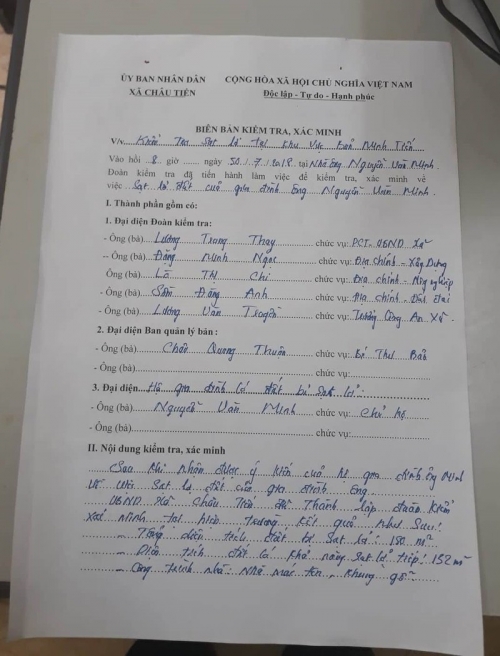 ỦY BAN NHÂN DÂN CỘNG HÒA XÃ HỘI CHỦ NGHĨA VIỆT NAM
XÃ CHÂU TIẾN Độc lập - Tự do - Hạnh phúc
BIÊN BẢN KIỂM TRA, XÁC MINH
V/v Kiểm Tra Sạt lở tại khu vực Bản Minh Tiến
Vào hồi 8 giờ ...... ngày 30 / 7 / 2018 tại Nhà ông Nguyễn Văn Minh
Đoàn kiểm tra đã tiến hành làm việc để kiểm tra, xác minh về
việc Sạt lở đất của gia đình ông Nguyễn Văn Minh
I. Thành phần gồm có:
1. Đại diện Đoàn kiểm tra:
- Ông (bà) Lương Trung Thay chức vụ: PCT. UBND Xã
- Ông (bà) Đặng Minh Ngọc chức vụ: Địa chính - Xây Dựng
- Ông (bà) Lã Thị Chị chức vụ: Địa chính - Nông nghiệp
- Ông (bà) Sầm Đăng Anh chức vụ: Địa chính - Đất Đai
- Ông (bà) Lương Văn chức vụ: Trưởng Công An Xã
2. Đại diện Ban quản lý bản:
- Ông (bà) Quang Thuân chức vụ: Bí Thư Bản
- Ông (bà) chức vụ:
3. Đại diện Hộ gia đình có đất bị sạt lở:
- Ông (bà) Nguyễn Văn Minh chức vụ: Chủ hộ
- Ông (bà) chức vụ:
II. Nội dung kiểm tra, xác minh
Sau khi nhận được ý kiến của hộ gia đình ông Minh
Về việc sạt lở đất của gia đình ông
UBND xã Châu Tiến đã Thành lập đoàn kiểm
Xác minh tại hiện Trường, kết quả như sau:
- Tổng diện tích đất bị sạt lở: 150 m²
- Diện tích đất có khả năng sạt lở tiếp: 152 m²
- Công trình nhà: Nhà mái tôn, khung gỗ